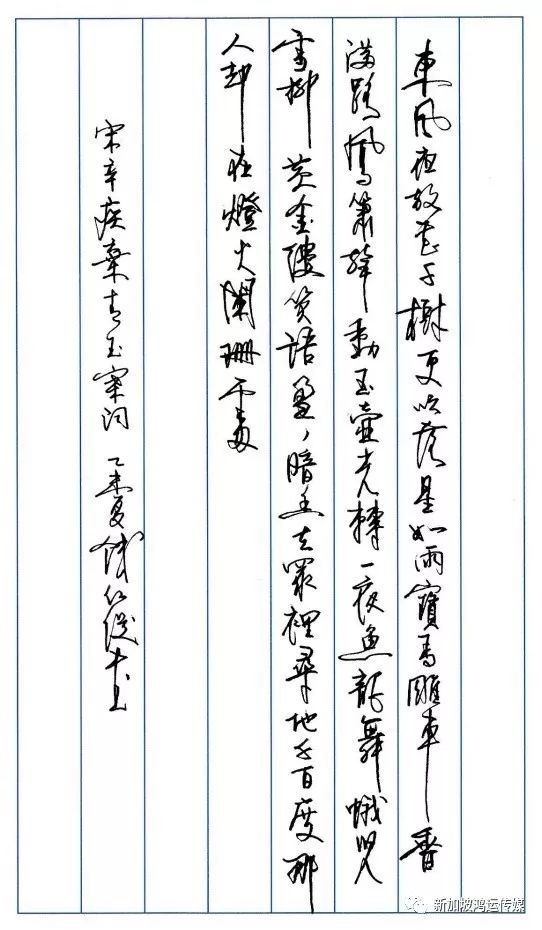 東風夜放花千樹更吹落星如雨寶馬雕車香
滿路鳳簫聲動玉壺光轉一夜魚龍舞蛾兒
雪柳黃金縷笑語盈々暗香去眾裡尋他千百度那
人却在燈火闌珊處
宋辛疾棄青玉案词 乙未夏 书
新加坡鸿运传媒